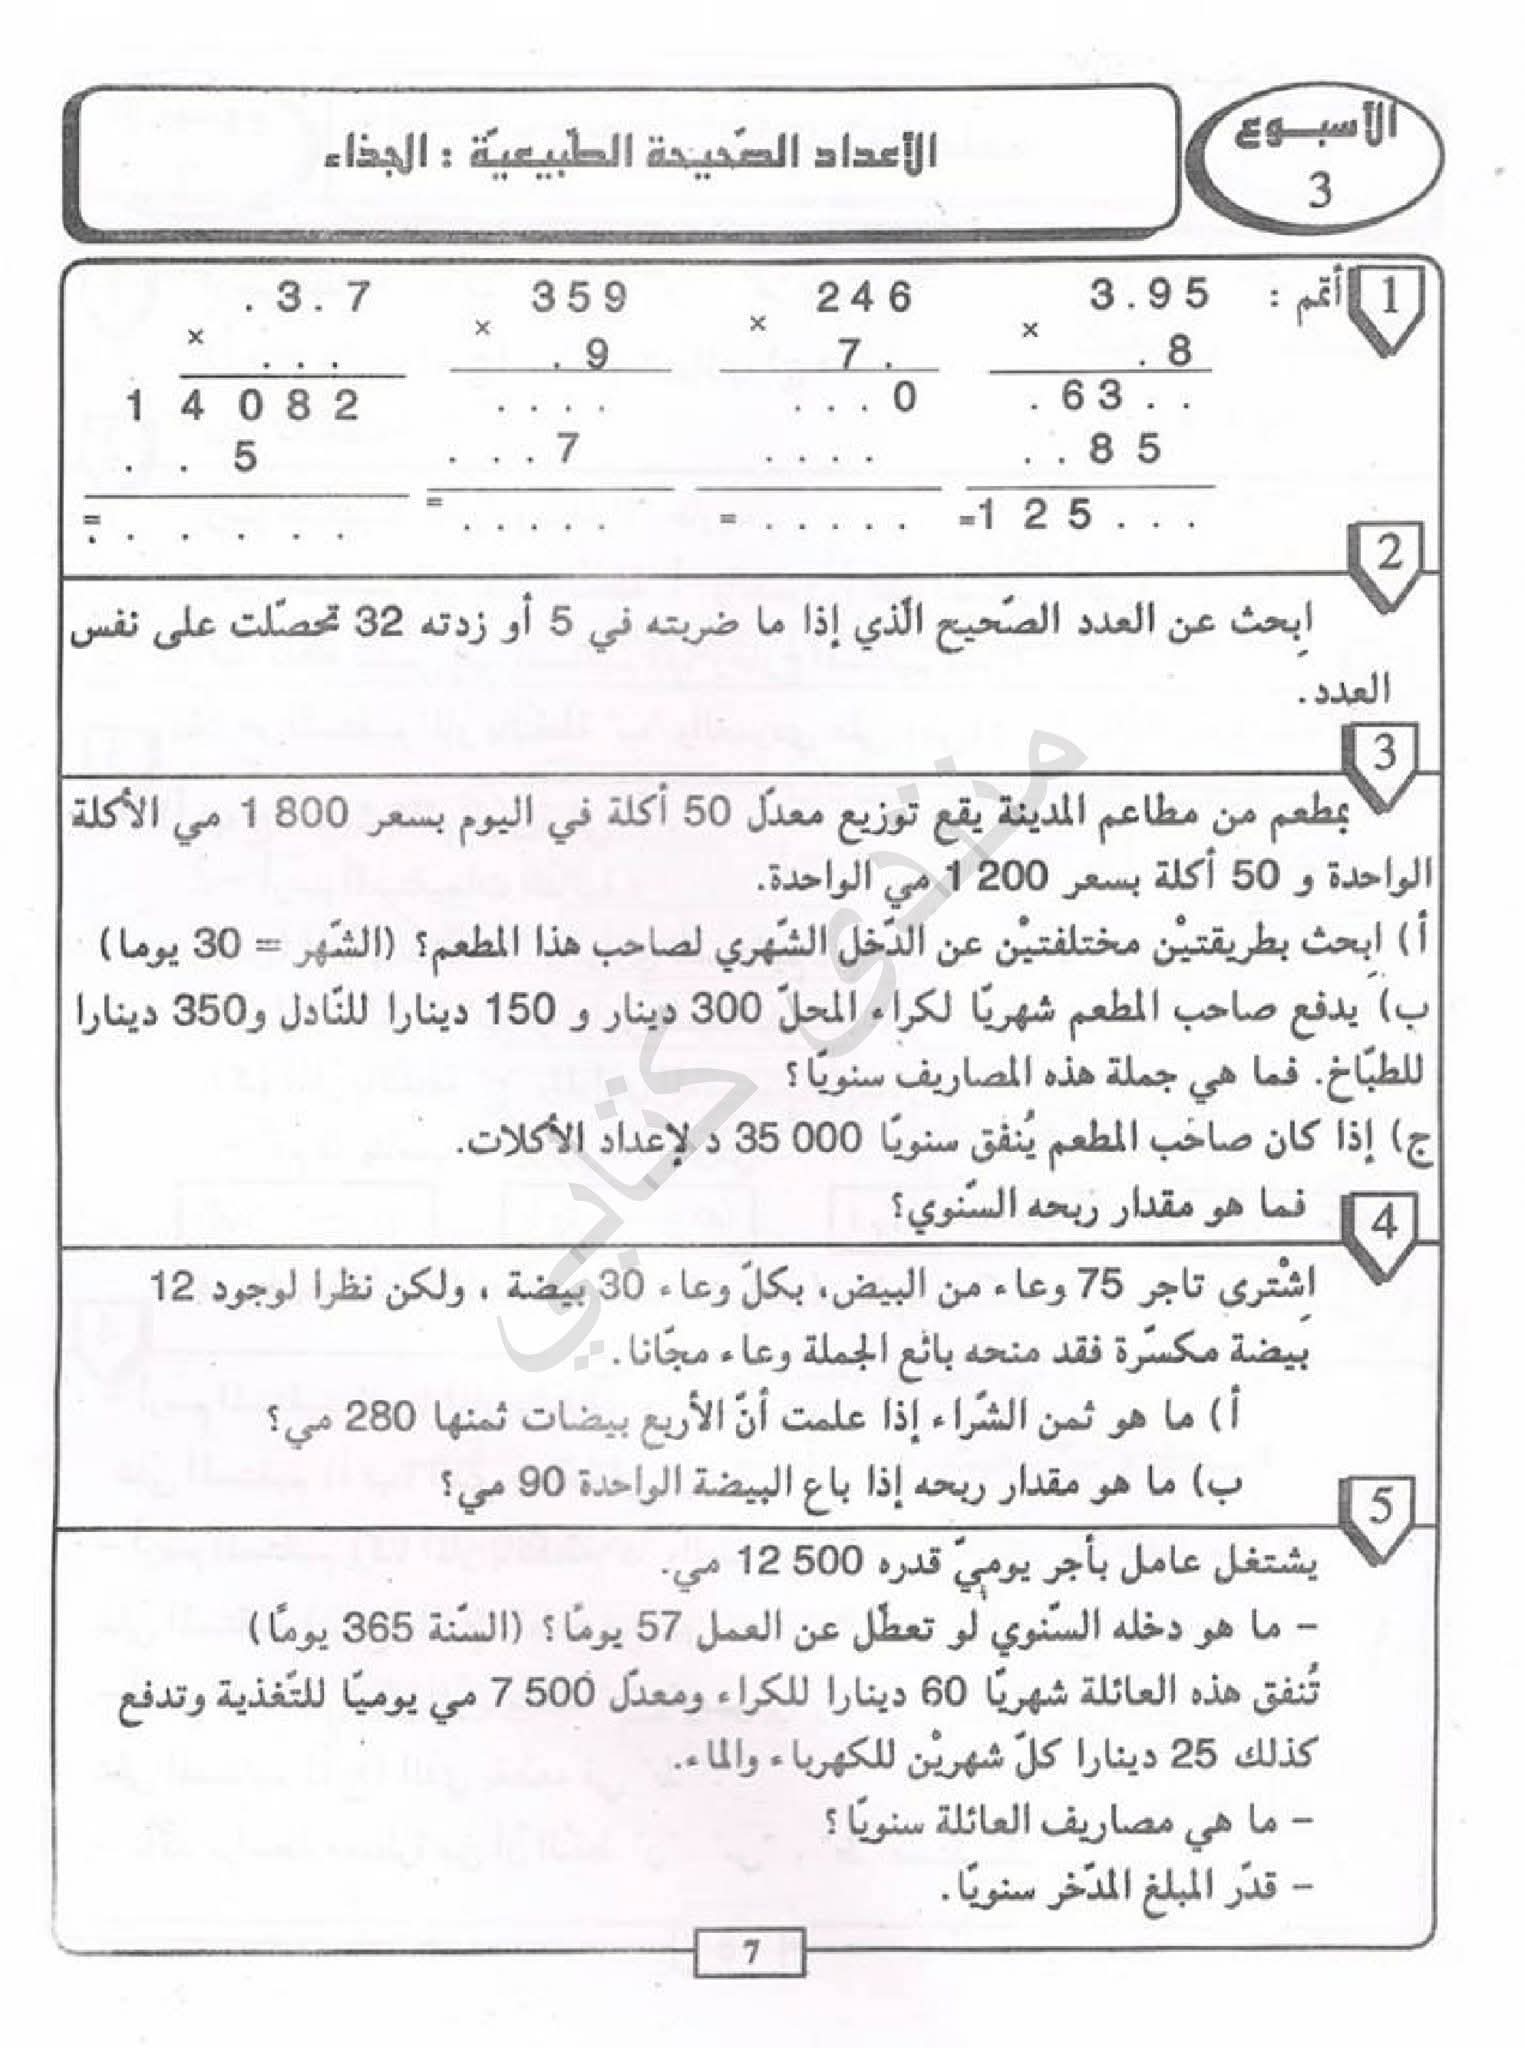 الأسبوع
3
الأعداد الصّحيحة الطّبيعيّة : الجذاء
1
أتمم :
3.95 246 359 .3.7
× .8 × 7. × .9 × ...
.63.. ...0 .... 14082
..85 .... ...7 ..5
=125... =..... =..... =......
2
اِبحث عن العدد الصّحيح الّذي إذا ما ضربته في 5 أو زدته 32 تحصّلت على نفس
العدد.
3
بمطعم من مطاعم المدينة يقع توزيع معدّل 50 أكلة في اليوم بسعر 800 1 مي الأكلة
الواحدة و 50 أكلة بسعر 200 1 مي الواحدة.
أ) اِبحث بطريقتيْن مختلفتيْن عن الدّخل الشّهري لصاحب هذا المطعم؟ (الشّهر = 30 يوما)
ب) يدفع صاحب المطعم شهريّا لكراء المحلّ 300 دينار و 150 دينارا للنّادل و350 دينارا
للطبّاخ. فما هي جملة هذه المصاريف سنويّا؟
ج) إذا كان صاحب المطعم يُنفق سنويّا 000 35 د لإعداد الأكلات.
فما هو مقدار ربحه السّنوي؟
4
اِشْترى تاجر 75 وعاء من البيض، بكلّ وعاء 30 بيضة ، ولكن نظرا لوجود 12
بيضة مكسّرة فقد منحه بائع الجملة وعاء مجّانا.
أ) ما هو ثمن الشّراء إذا علمت أنّ الأربع بيضات ثمنها 280 مي؟
ب) ما هو مقدار ربحه إذا باع البيضة الواحدة 90 مي؟
5
يشتغل عامل بأجر يوميّ قدره 500 12 مي.
– ما هو دخله السّنوي لو تعطّل عن العمل 57 يومًا؟ (السّنة 365 يومًا)
تُنفق هذه العائلة شهريّا 60 دينارا للكراء ومعدّل 500 7 مي يوميّا للتّغذية وتدفع
كذلك 25 دينارا كلّ شهريْن للكهرباء والماء.
– ما هي مصاريف العائلة سنويّا؟
– قدّر المبلغ المدّخر سنويّا.
7
منتدى كتابي